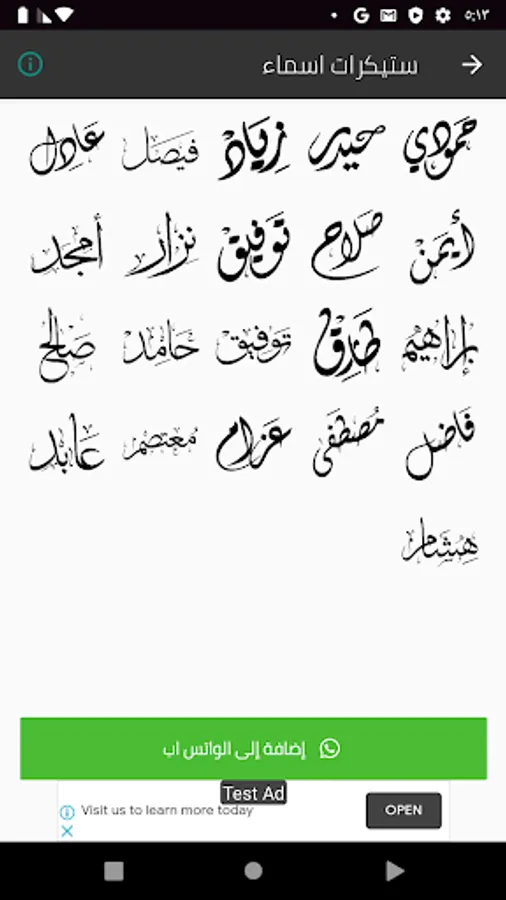 ٥:١٢
ستيكرات اسماء
حمودي حيدر زياد فيصل عادل
أيمن صلاح توفيق نزار أمجد
إبراهيم طارق توفيق حامد صالح
فاضل مصطفى عزام معتصم عابد
هشام
إضافة إلى الواتس اب
Test Ad
Visit us to learn more today
OPEN